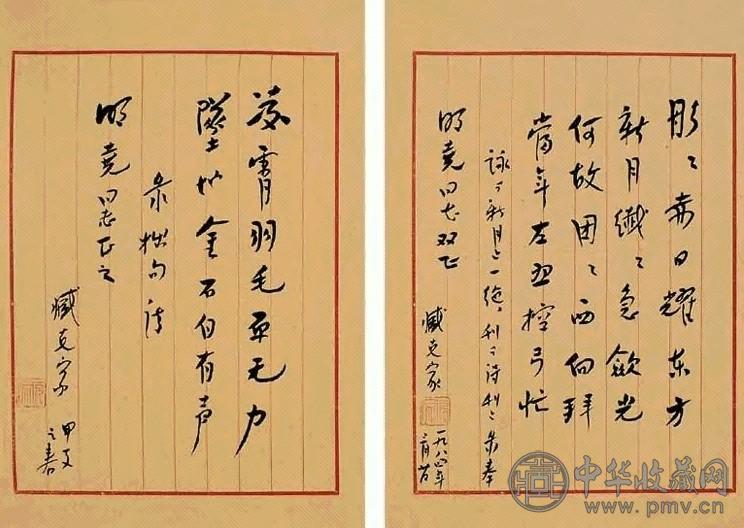 彤〻赤日耀东方
新月纖〻急歛光
何故团〻西向拜
當年控弓忙
詠「新月」一绝，刊「诗刊」，录奉
明堯同志双正
臧克家
一九八四年
凌霄羽毛原无力
墜地金石自有声
录拙句请
明堯同志正之
臧克家
甲子之春
中华收藏网
www.pmv.cn